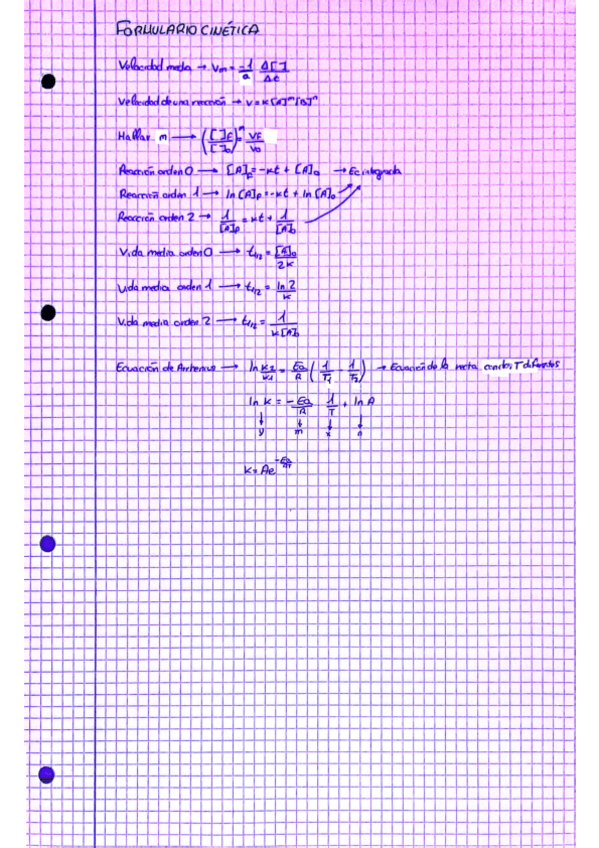 FORMULARIO CINÉTICA
Velocidad media → Vm = -1/a Δ[ ]/Δt
Velocidad de una reacción → v = k[A]^m[B]^n
Hallar m → ([ ]F/[ ]0)^m = VF/V0
Reacción orden 0 → [A]F = -kt + [A]0 → Ec integrada
Reacción orden 1 → ln[A]F = -kt + ln[A]0
Reacción orden 2 → 1/[A]F = kt + 1/[A]0
Vida media orden 0 → t1/2 = [A]0/2k
Vida media orden 1 → t1/2 = ln 2/k
Vida media orden 2 → t1/2 = 1/k[A]0
Ecuación de Arrhenius → ln k2/k1 = Ea/R (1/T1 - 1/T2) → Ecuación de la recta con dos T diferentes
ln k = -Ea/R 1/T + ln A
↓ ↓ ↓ ↓
y m x n
k = Ae^-Ea/RT